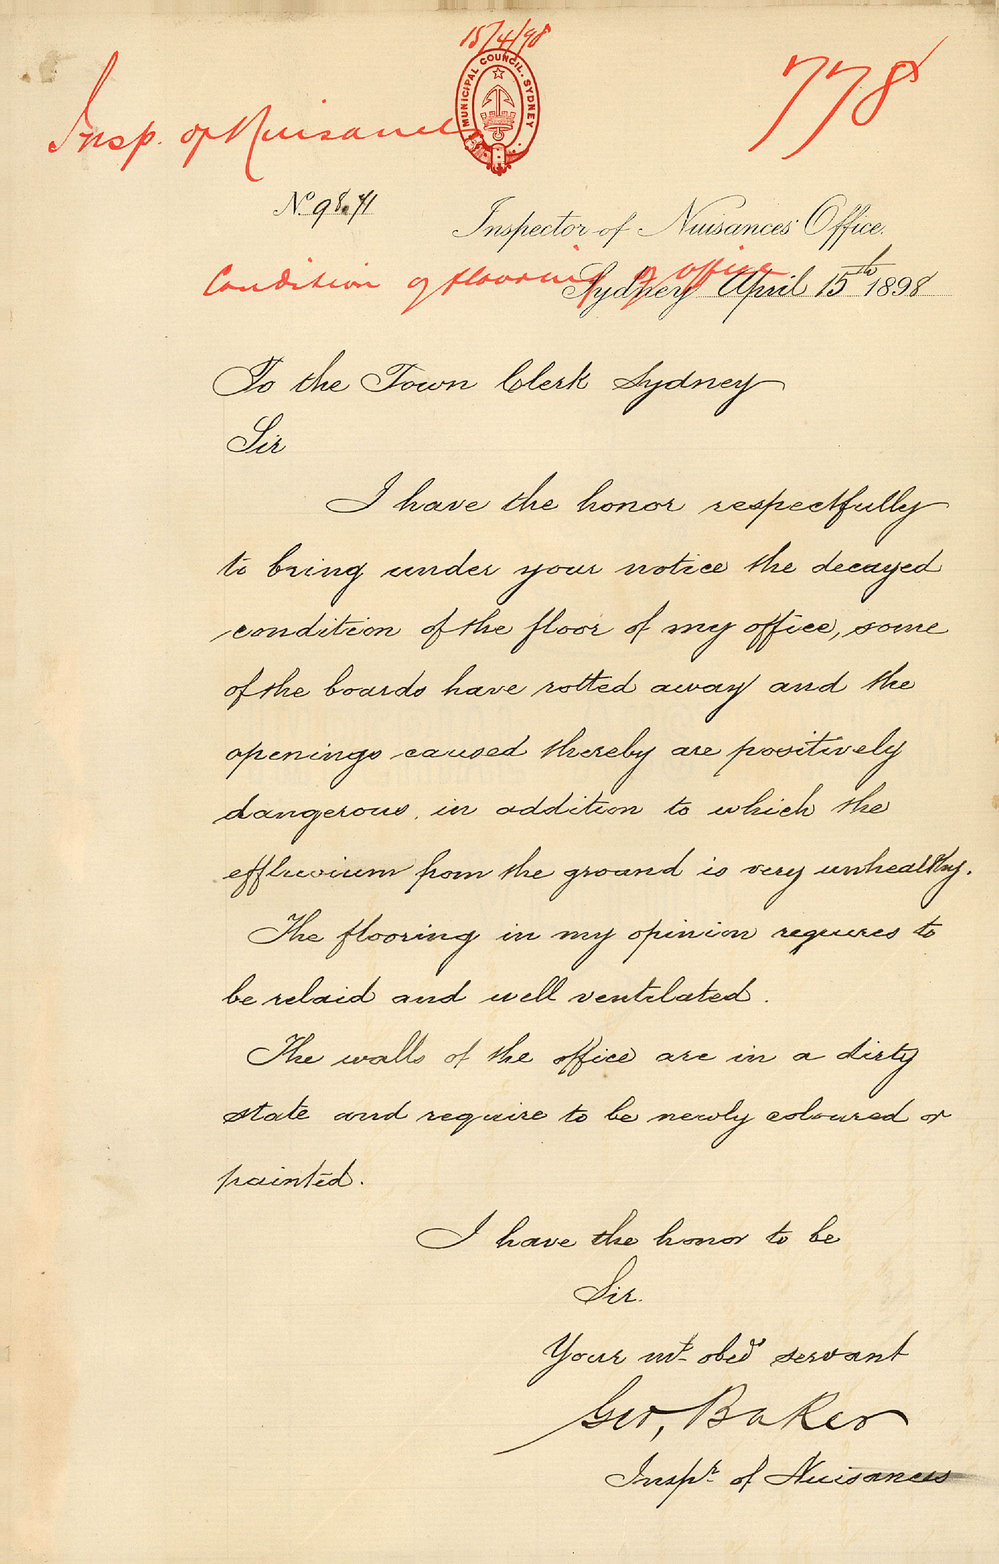 15/4/98
MUNICIPAL COUNCIL. SYDNEY
778
Insp. of Nuisances
No. 98.41
Inspector of Nuisances' Office.
Condition of flooring of office
Sydney April 15th 1898
To the Town Clerk Sydney
Sir
I have the honor respectfully
to bring under your notice the decayed
condition of the floor of my office, some
of the boards have rotted away and the
openings caused thereby are positively
dangerous, in addition to which the
effluvium from the ground is very unhealthy.
The flooring in my opinion requires to
be relaid and well ventilated.
The walls of the office are in a dirty
state and require to be newly coloured or
painted.
I have the honor to be
Sir.
Your mt obedt servant
Geo, Baker
Inspr of Nuisances